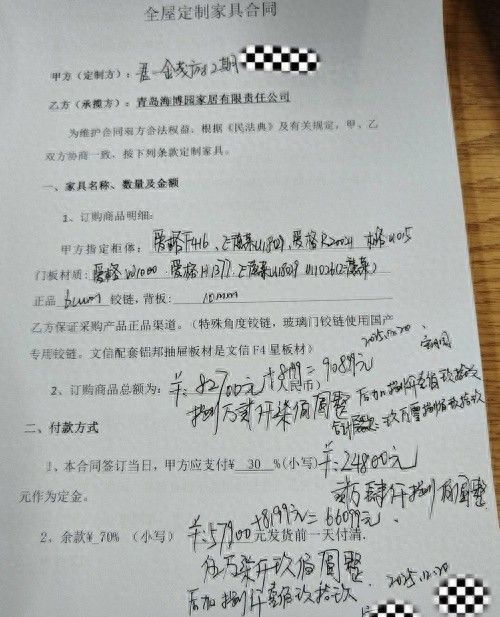 全屋定制家具合同
甲方（定制方）： 金茂 2期
乙方（承揽方）：青岛海博园家居有限责任公司
为维护合同双方合法权益、根据《民法典》及有关规定，甲、乙
双方协商一致，按下列条款定制家具。
一、家具名称、数量及金额
1、订购商品明细：
甲方指定柜体：爱格F416、 爱格 U015
门板材质：爱格W1000．爱格H1377．
正品 blum 铰链，背板： 10mm
乙方保证采购产品正品渠道。（特殊角度铰链，玻璃门铰链使用国产
专用铰链。文信配套铝邦抽屉板材是文信F4星板材） 2025.12.20
2、订购商品总额为：¥：82700元+8199=90899元
（人民币）
捌万贰仟柒佰圆整 后加捌仟壹佰玖拾玖
玖万零捌佰玖拾玖
二、付款方式
1、本合同签订当日，甲方应支付¥ 30 %(小写) ¥：24800元
贰万肆仟捌佰圆整
元作为定金。
2、余款¥ 70% （小写）¥：57900+8199元=66099元．
元发货前一天付清．
伍万柒仟玖佰圆整
后加捌仟壹佰玖拾玖 2025.12.20